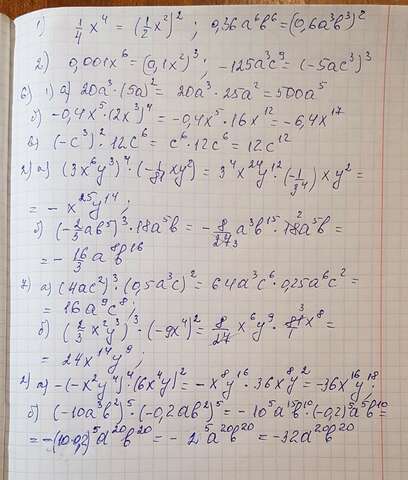 1) 1/4 x⁴ = (1/2 x²)² ; 0,36a⁶b⁶ = (0,6a³b³)²
2) 0,001x⁶ = (0,1x²)³ ; -125a³c⁹ = (-5ac³)³
6) 1) а) 20a³·(5a)² = 20a³·25a² = 500a⁵
б) -0,4x⁵·(2x³)⁴ = -0,4x⁵·16x¹² = -6,4x¹⁷
в) (-c³)²·12c⁶ = c⁶·12c⁶ = 12c¹²
2) а) (3x⁶y³)⁴·(-1/81 xy²) = 3⁴x²⁴y¹²·(-1/3⁴)xy² =
= -x²⁵y¹⁴ ;
б) (-2/3 ab⁵)³·18a⁵b = -8/27₃ a³b¹⁵·18²a⁵b =
= -16/3 a⁸b¹⁶
7. а) (4ac²)³·(0,5a³c)² = 64a³c⁶·0,25a⁶c² =
= 16a⁹c⁸ ;
б) (2/3 x²y³)³·(-9x⁴)² = 8/27 x⁶y⁹·81³/1 x⁸ =
= 24x¹⁴y⁹ ;
2) а) -(-x²y⁴)⁴·(6x⁴y)² = -x⁸y¹⁶·36x⁸y² = -36x¹⁶y¹⁸
б) (-10a³b²)⁵·(-0,2ab²)⁵ = -10⁵a¹⁵b¹⁰·(-0,2)⁵a⁵b¹⁰ =
= -(10·0,2)⁵a²⁰b²⁰ = -2⁵a²⁰b²⁰ = -32a²⁰b²⁰